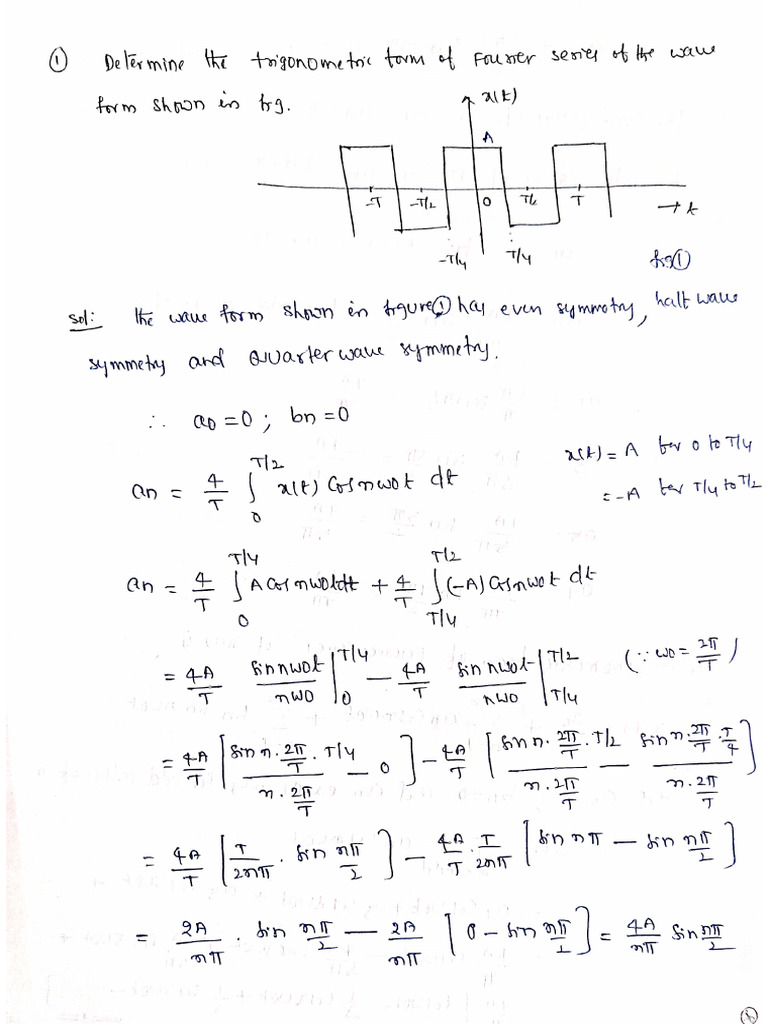 ① Determine the trigonometric form of Fourier series of the wave
form shown in fig.
x(t)
A
-T -T/2 0 T/2 T
→ t
-T/4 T/4
fig①
Sol: The wave form shown in figure① has even symmetry, half wave
symmetry and Quarter wave symmetry.
∴ a0 = 0 ; bn = 0
x(t) = A for 0 to T/4
= -A for T/4 to T/2
an = 4/T ∫_0^{T/2} x(t) Cos nω0t dt
an = 4/T ∫_0^{T/4} A cos nω0t dt + 4/T ∫_{T/4}^{T/2} (-A) Cos nω0t dt
= 4A/T sin nω0t / nω0 |_0^{T/4} - 4A/T sin nω0t / nω0 |_{T/4}^{T/2} (∵ ω0 = 2π/T)
= 4A/T [ (sin n. 2π/T . T/4) / (n. 2π/T) - 0 ] - 4A/T [ (sin n. 2π/T . T/2) / (n. 2π/T) - (sin n. 2π/T . T/4) / (n. 2π/T) ]
= 4A/T [ T/2nπ . sin nπ/2 ] - 4A/T . T/2nπ [ sin nπ - sin nπ/2 ]
= 2A/nπ . sin nπ/2 - 2A/nπ [ 0 - sin nπ/2 ] = 4A/nπ sin nπ/2